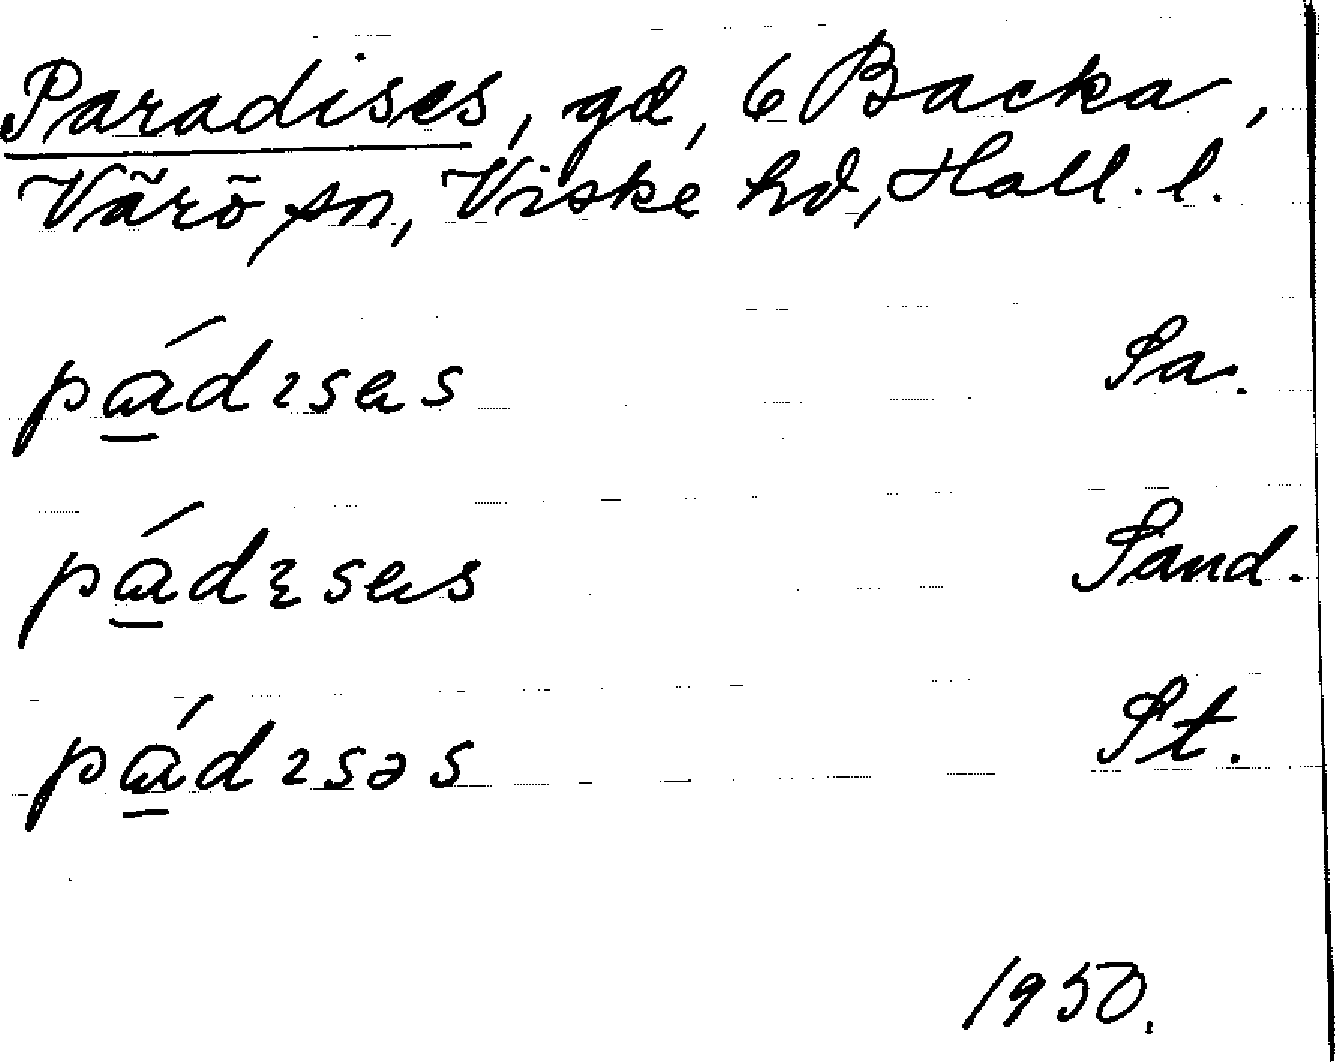 Paradises, gd, 6 Backa,
Värö sn, Viske hd, Hall. l.
pá̲dısas Sa.
pá̲dɩsas Sand.
pá̲dısəs St.
1950.